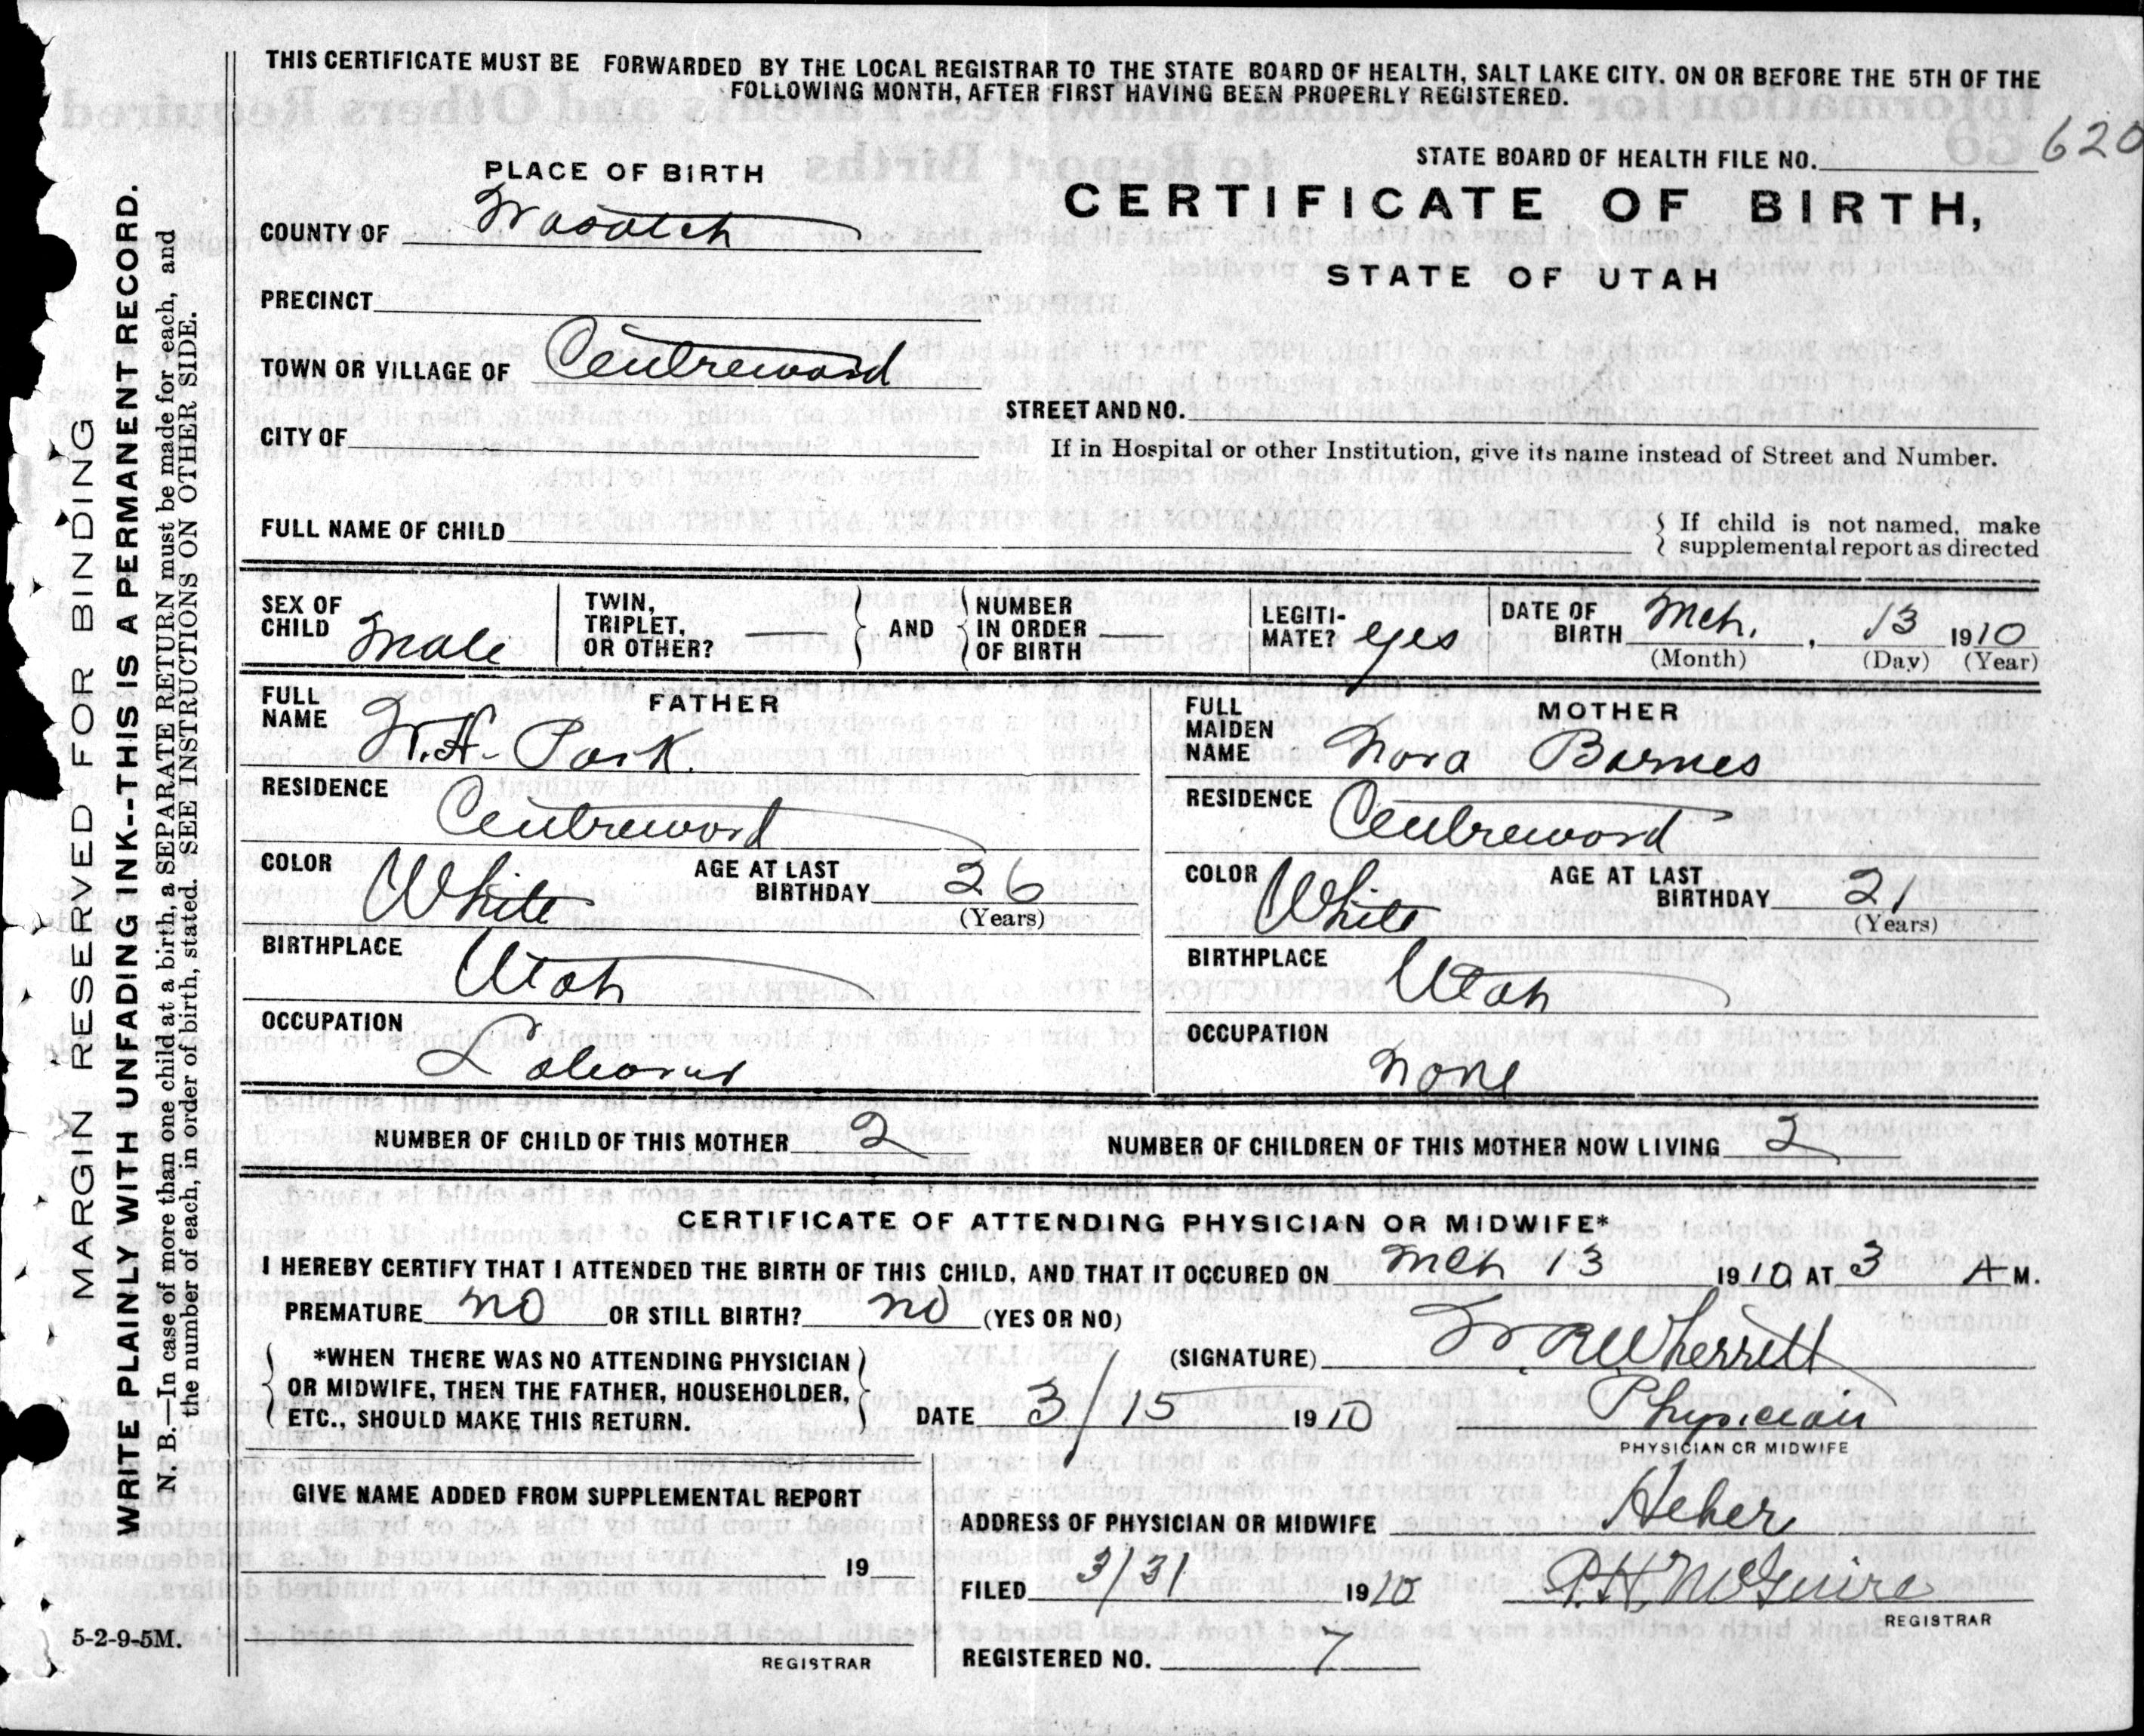 THIS CERTIFICATE MUST BE FORWARDED BY THE LOCAL REGISTRAR TO THE STATE BOARD OF HEALTH, SALT LAKE CITY. ON OR BEFORE THE 5TH OF THE
FOLLOWING MONTH, AFTER FIRST HAVING BEEN PROPERLY REGISTERED.
STATE BOARD OF HEALTH FILE NO. 620
PLACE OF BIRTH
CERTIFICATE OF BIRTH,
STATE OF UTAH
COUNTY OF Wasatch
PRECINCT
TOWN OR VILLAGE OF Centreward
STREET AND NO.
CITY OF
If in Hospital or other Institution, give its name instead of Street and Number.
FULL NAME OF CHILD
If child is not named, make
supplemental report as directed
SEX OF CHILD Male
TWIN, TRIPLET, OR OTHER? —
AND
NUMBER IN ORDER OF BIRTH —
LEGITI-MATE? yes
DATE OF BIRTH Mch. , 13 1910
(Month) (Day) (Year)
FATHER
FULL NAME W. H. Park.
RESIDENCE Centreward
COLOR White AGE AT LAST BIRTHDAY 26
(Years)
BIRTHPLACE Utah
OCCUPATION Laborer
MOTHER
FULL MAIDEN NAME Nora Barnes
RESIDENCE Centreward
COLOR White AGE AT LAST BIRTHDAY 21
(Years)
BIRTHPLACE Utah
OCCUPATION none
NUMBER OF CHILD OF THIS MOTHER 2 NUMBER OF CHILDREN OF THIS MOTHER NOW LIVING 2
CERTIFICATE OF ATTENDING PHYSICIAN OR MIDWIFE*
I HEREBY CERTIFY THAT I ATTENDED THE BIRTH OF THIS CHILD, AND THAT IT OCCURED ON Mch 13 1910 AT 3 A M.
PREMATURE no OR STILL BIRTH? no (YES OR NO)
*WHEN THERE WAS NO ATTENDING PHYSICIAN
OR MIDWIFE, THEN THE FATHER, HOUSEHOLDER,
ETC., SHOULD MAKE THIS RETURN.
(SIGNATURE) W. R Wherritt
DATE 3/15 1910
Physician
PHYSICIAN OR MIDWIFE
GIVE NAME ADDED FROM SUPPLEMENTAL REPORT
19
REGISTRAR
ADDRESS OF PHYSICIAN OR MIDWIFE Heber
FILED 3/31 1910 P. H. McGuire
REGISTRAR
REGISTERED NO. 7
5-2-9-5M.
MARGIN RESERVED FOR BINDING
WRITE PLAINLY WITH UNFADING INK--THIS IS A PERMANENT RECORD.
N. B.—In case of more than one child at a birth, a SEPARATE RETURN must be made for each, and
the number of each, in order of birth, stated. SEE INSTRUCTIONS ON OTHER SIDE.